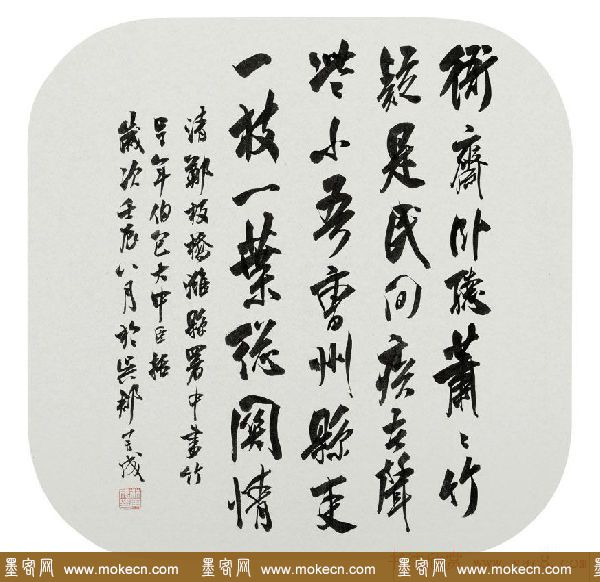 衙齋卧聽蕭ゝ竹
疑是民间疾苦聲
些小吾曹州縣吏
一枝一葉總關情
清鄭板橋濰縣署中畫竹
呈年伯包大中丞括
歲次壬辰八月於吳郡
墨客网 www.mokecn.com 墨客网 www.mokecn.com 墨客网 www.mokecn.com